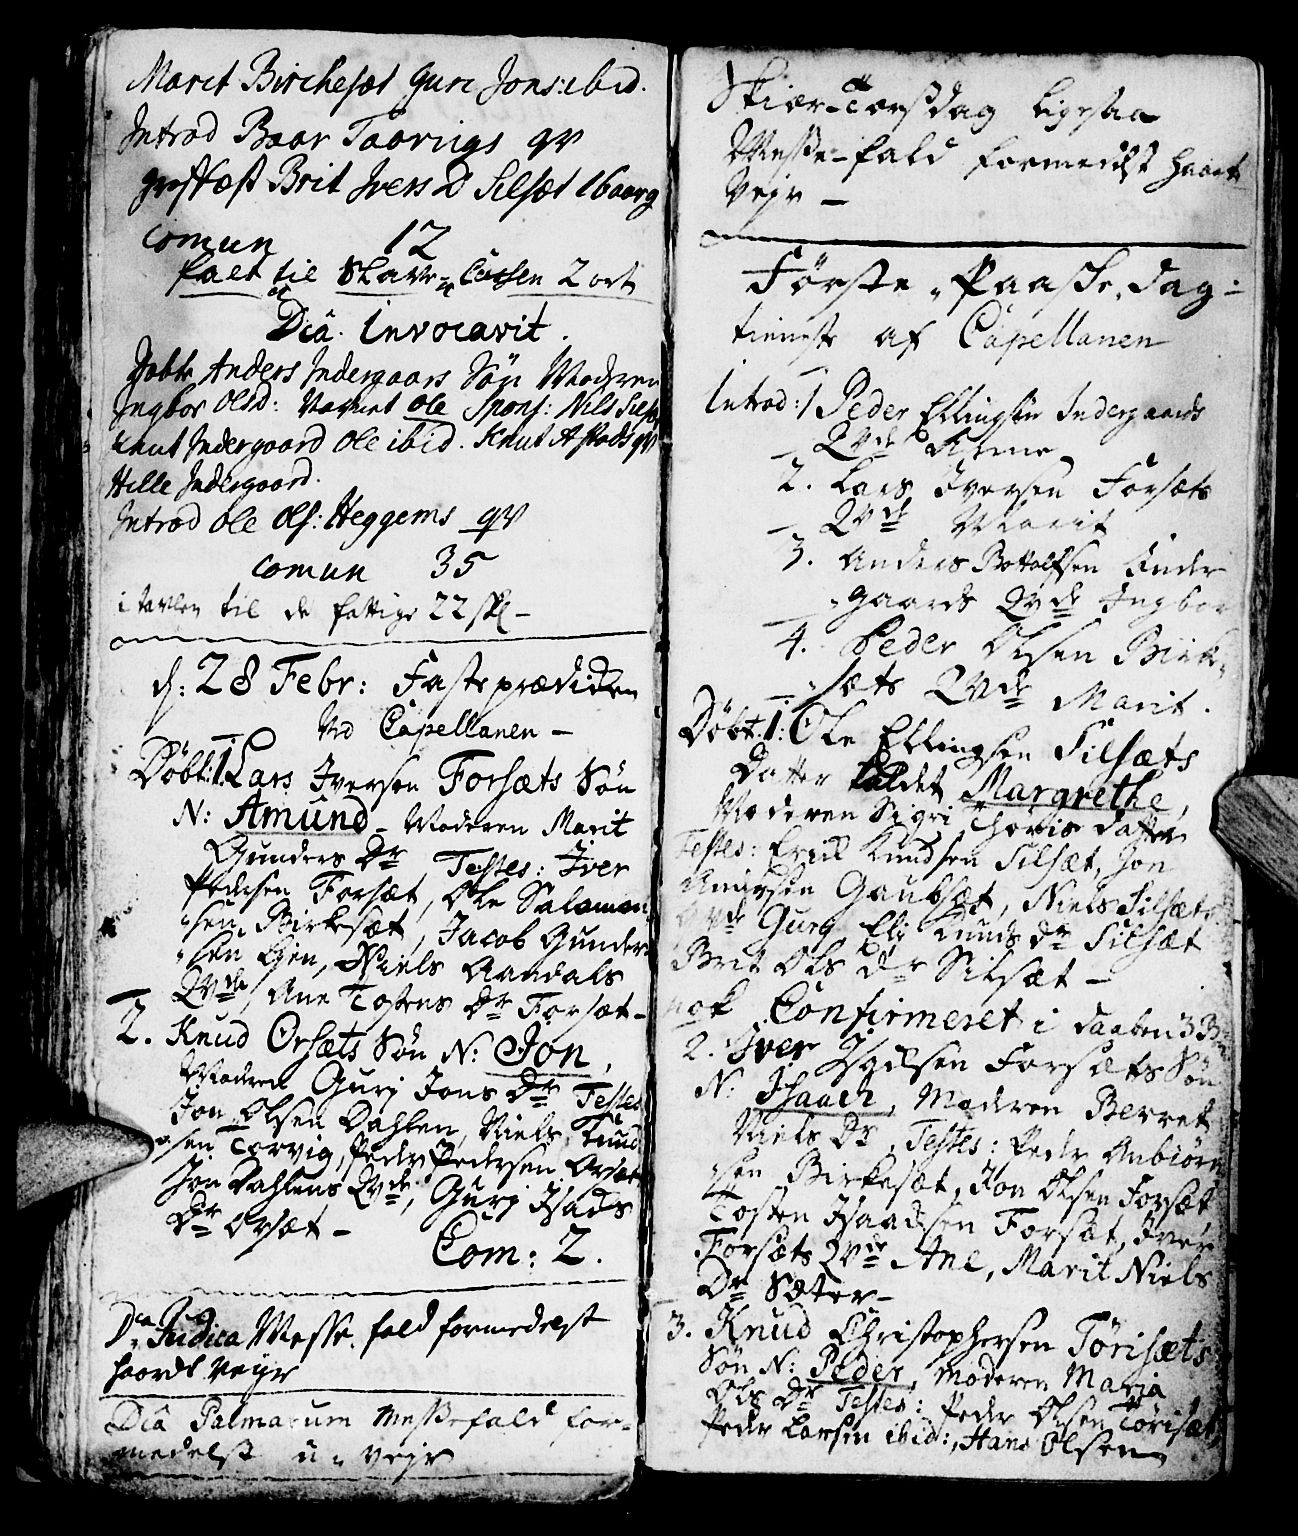 Marit Birchesæt Guri Jons: ibid.
Introd Baar Taarvigs qv
greftæst Brit Ivers D Silsæt 16 aarg
comun 12
falt til Slave-Cassen 2 ort
Dca. Invocavit.
Døbte Anders Indergaars Søn Moderen
Ingbor Olsd: Nafnet Ole Spons: Nils Silsæt
knut Indergaard Ole ibid. Knut Astads qv
Hille Indergaard.
Introd Ole Ols: Heggems qv
comun 35
i tavlen til de fattige 22 sk -
d: 28 Febr: Fasteprædicken
Ved Capellanen -
Døbt: 1 Lars Iversen Forsæts Søn
N: Amund - Moderen Marit
Gunders Dr, Testes: Iver
Pedersen Forsæt, Ole Salamon
sen Birkesæt, Jacob Gunder
sen Lien, Niels Aandals
Qvde, Ane Tostens Dr Forsæt -
2. Knud Orsæts Søn N: Jon,
Modren Gurj Jons Dr Testes
Jon Olsen Dahlen, Niels Knud
sen Torvig, Peder Pedersen Orsæt
Jon Dahlens Qvde, Gurj Isacs
Dr Orsæt -
Com: 2.
Dca Judica Messe fald formedelst
haardt Veyr
Dca Palmarum Messefald for-
medelst u-vejr
Skiær-Torsdag ligesaa
Messe-fald formedelst haart
Vejr -
Første Paaske-dag:
tieneste af Capellanen
Introd: 1 Peder Ellingsen Indergaards
Qvde Anne
2. Lars Iversen Forsæts
Qvde Marit
3. Anders Bottolfsen Inder
gaards Qvde Ingbor
4. Peder Olsen Birk-
sæts Qvde Marit.
Døbt. 1: Ole Ellingsen Silsæts
Datter kaldet Margrethe,
Moderen Sigri Thoris datter
Testes: Erick Knudsen Silsæt, Jon
Andersen Gaubsæt, Niels Silsæts
Qvde Gurg Eli Knuds dr Silsæt
Brit Ols dr Silsæt -
nok Confirmeret i daaben 3 Bør
2. Iver Isacsen Forsæts Søn
N: Isaach, Moderen Berret
Niels Dr, Testes: Peder Anbiørn
sen Birkesæt, Jon Olsen Forsæt
Tosten Isaacsen Forsæt, Iver
Forsæts Qvde Ane, Marit Niels
Dr Sæter -
3. Knud Christophersen Tørisæts
Søn N: Peder, Moderen Maria
Ols Dr Testes: Peder Olsen Tørisæt,
Peder Larsen ibid:, Hans Olsen